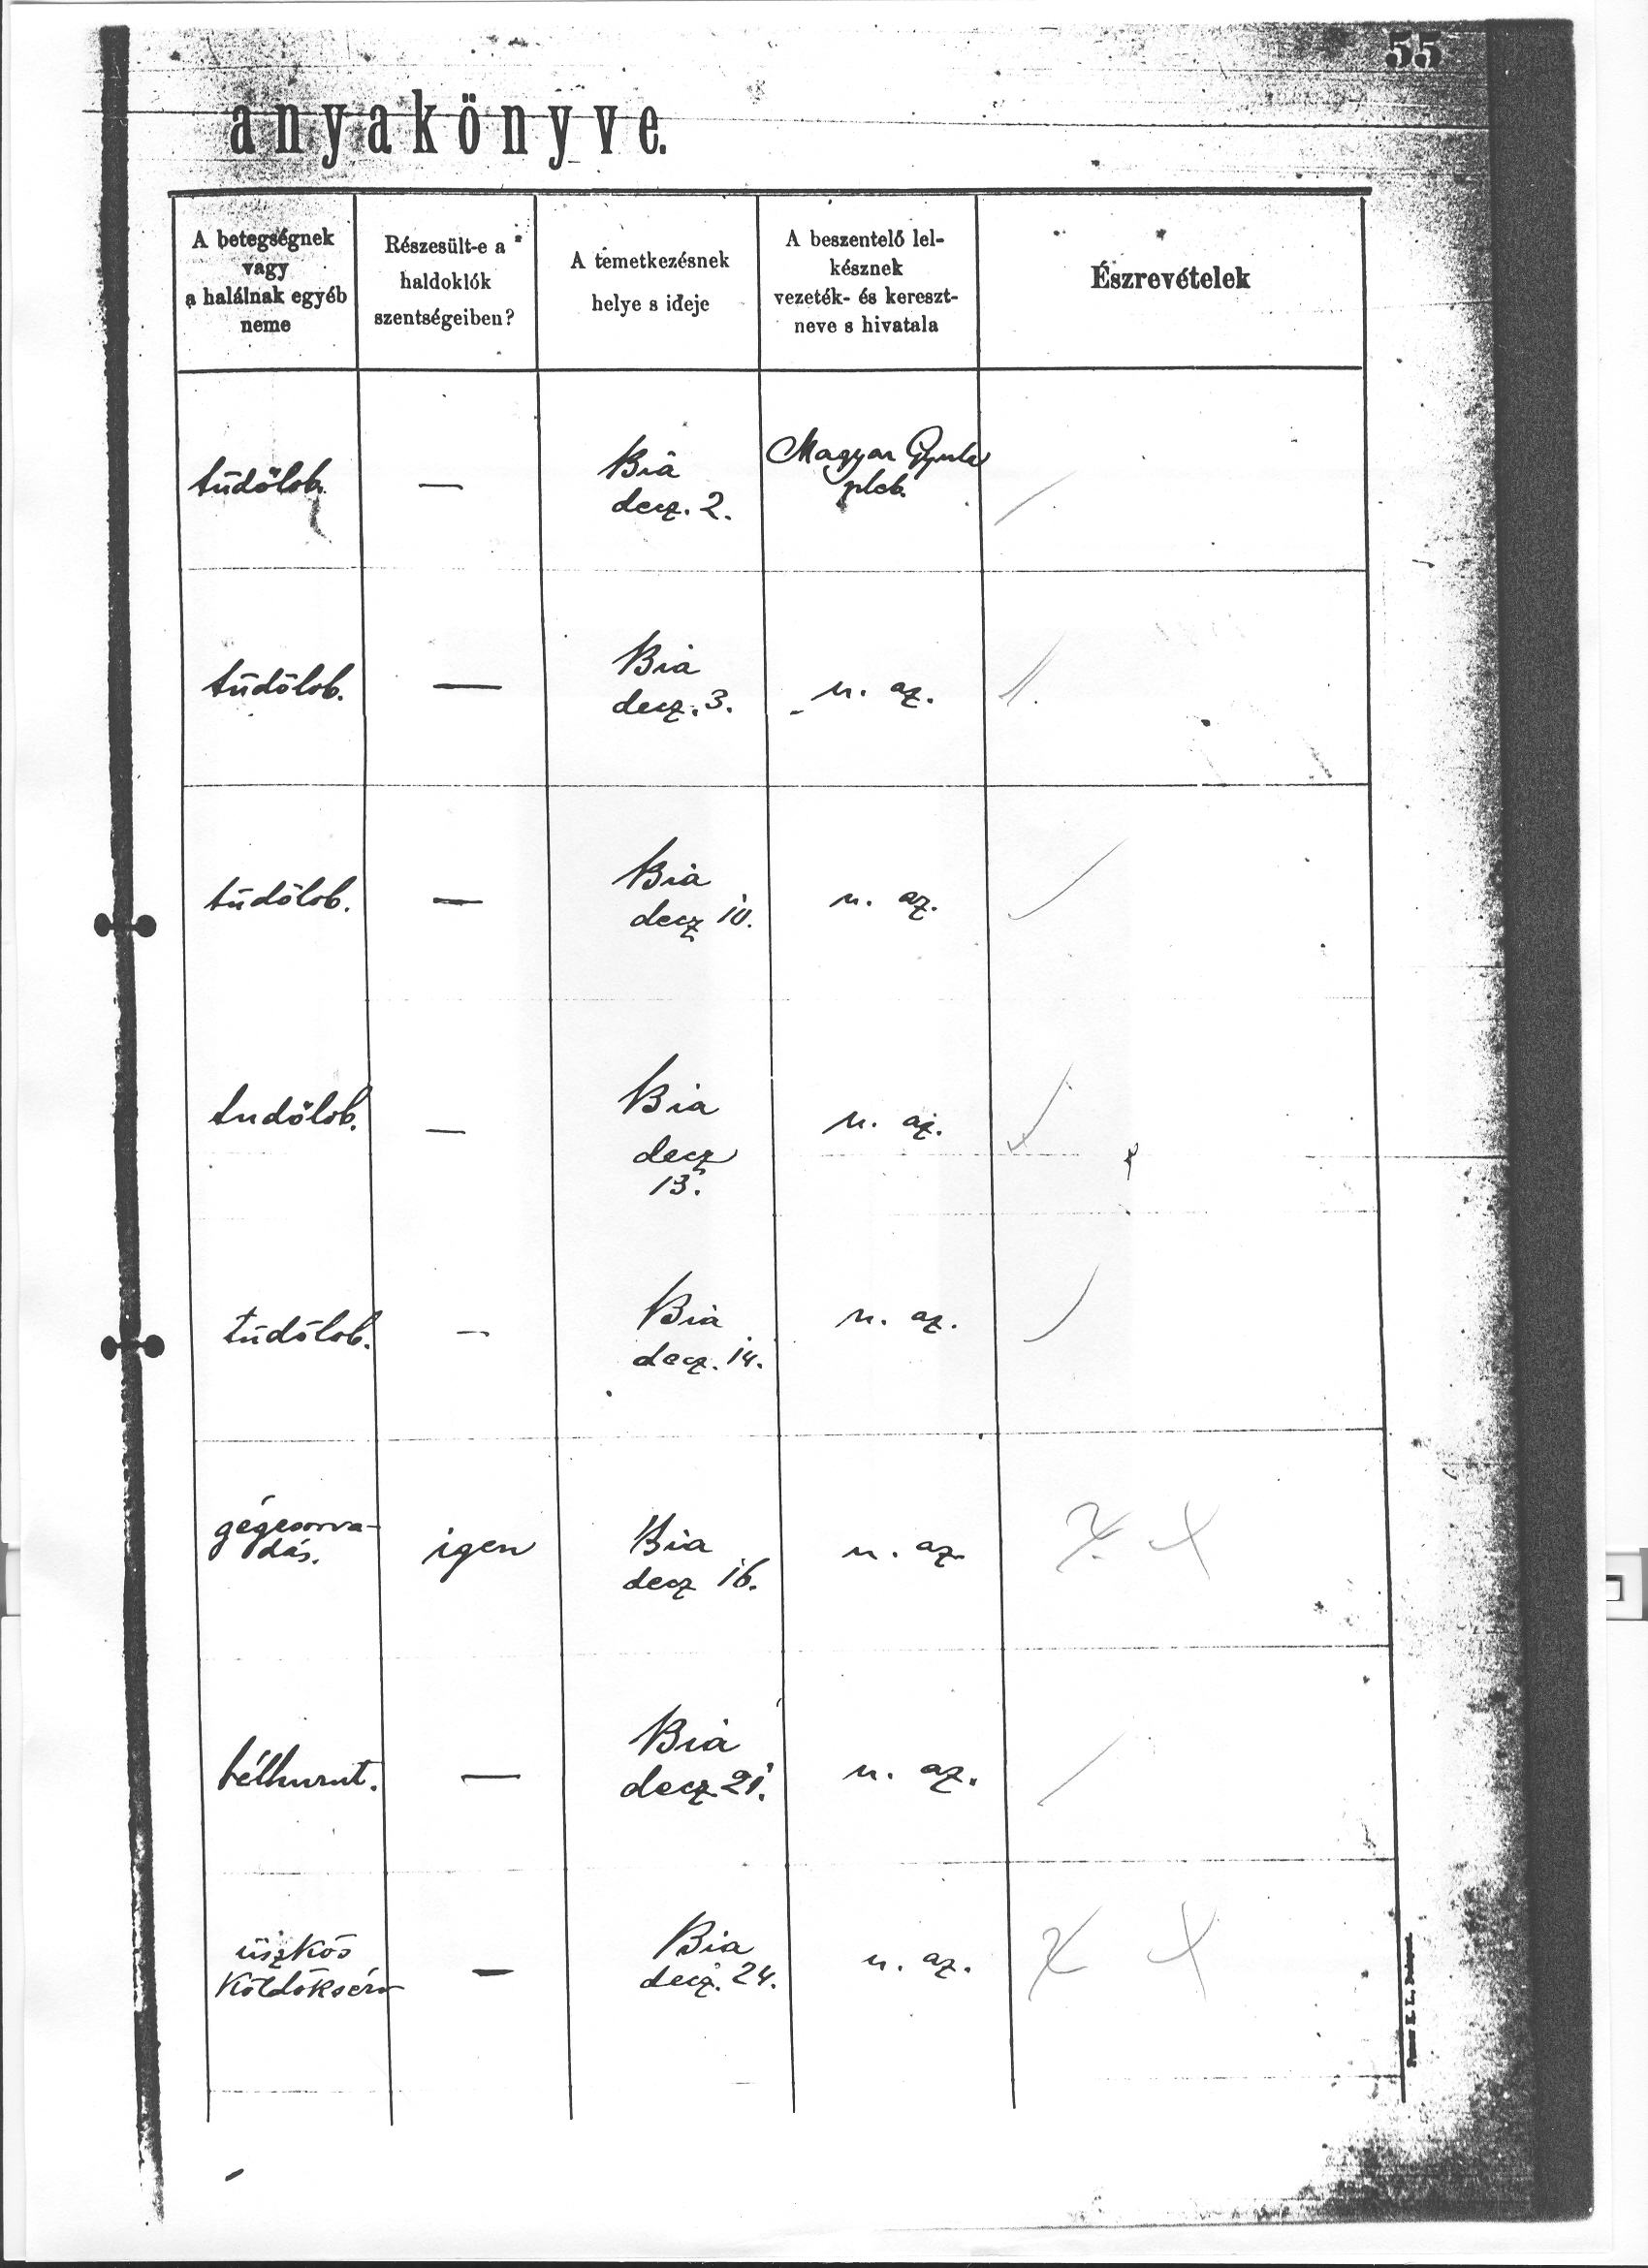 55
anyakönyve.
A betegségnek
vagy
a halálnak egyéb
neme
Részesült-e a
haldoklók
szentségeiben?
A temetkezésnek
helye s ideje
A beszentelő lel-
késznek
vezeték- és kereszt-
neve s hivatala
Észrevételek
tüdőlob.
—
Bia
decz. 2.
Magyar Gyula
pleb.
tüdőlob.
—
Bia
decz. 3.
u. az.
tüdőlob.
—
Bia
decz 10.
u. az.
tudőlob.
—
Bia
decz
13.
u. az.
tüdőlob.
—
Bia
decz. 14.
u. az.
gégesorva-
dás.
igen
Bia
decz 16.
u. az.
bélhurut.
—
Bia
decz 21.
u. az.
üszkös
Köldöksérv
—
Bia
decz. 24.
u. az.